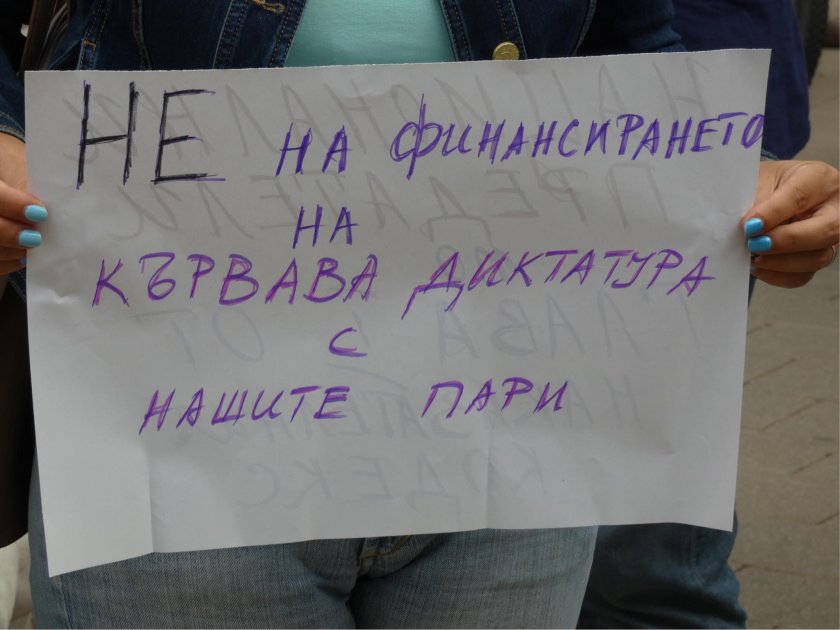 НЕ НА ФИНАНСИРАНЕТО
НА
КЪРВАВА ДИКТАТУРА
С
НАШИТЕ ПАРИ